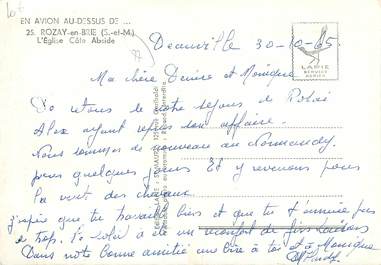 EN AVION AU-DESSUS DE ...
25. ROZAY-en-BRIE (S.-et-M.)
L'Église Côté Abside
LAPIE
SERVICE
AERIEN
Deauville 30-10-65
Ma chère Denise et Monique
De retour de notre séjour de
Alex ayant repris son affaire.
Nous sommes de nouveau au Normandy
pour quelques jours Et y revenons pour
la vente des chevaux
J'espère que tu travailles bien et que tu t'ennuie pas
de trop. Le soleil a été un
Dans notre bonne amitié une bise à toi et à Monique